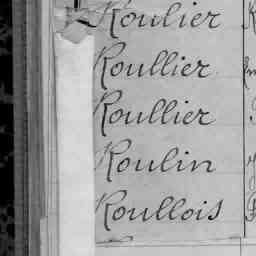 Roulier
Roullier
Roullier
Roulin
Roullois